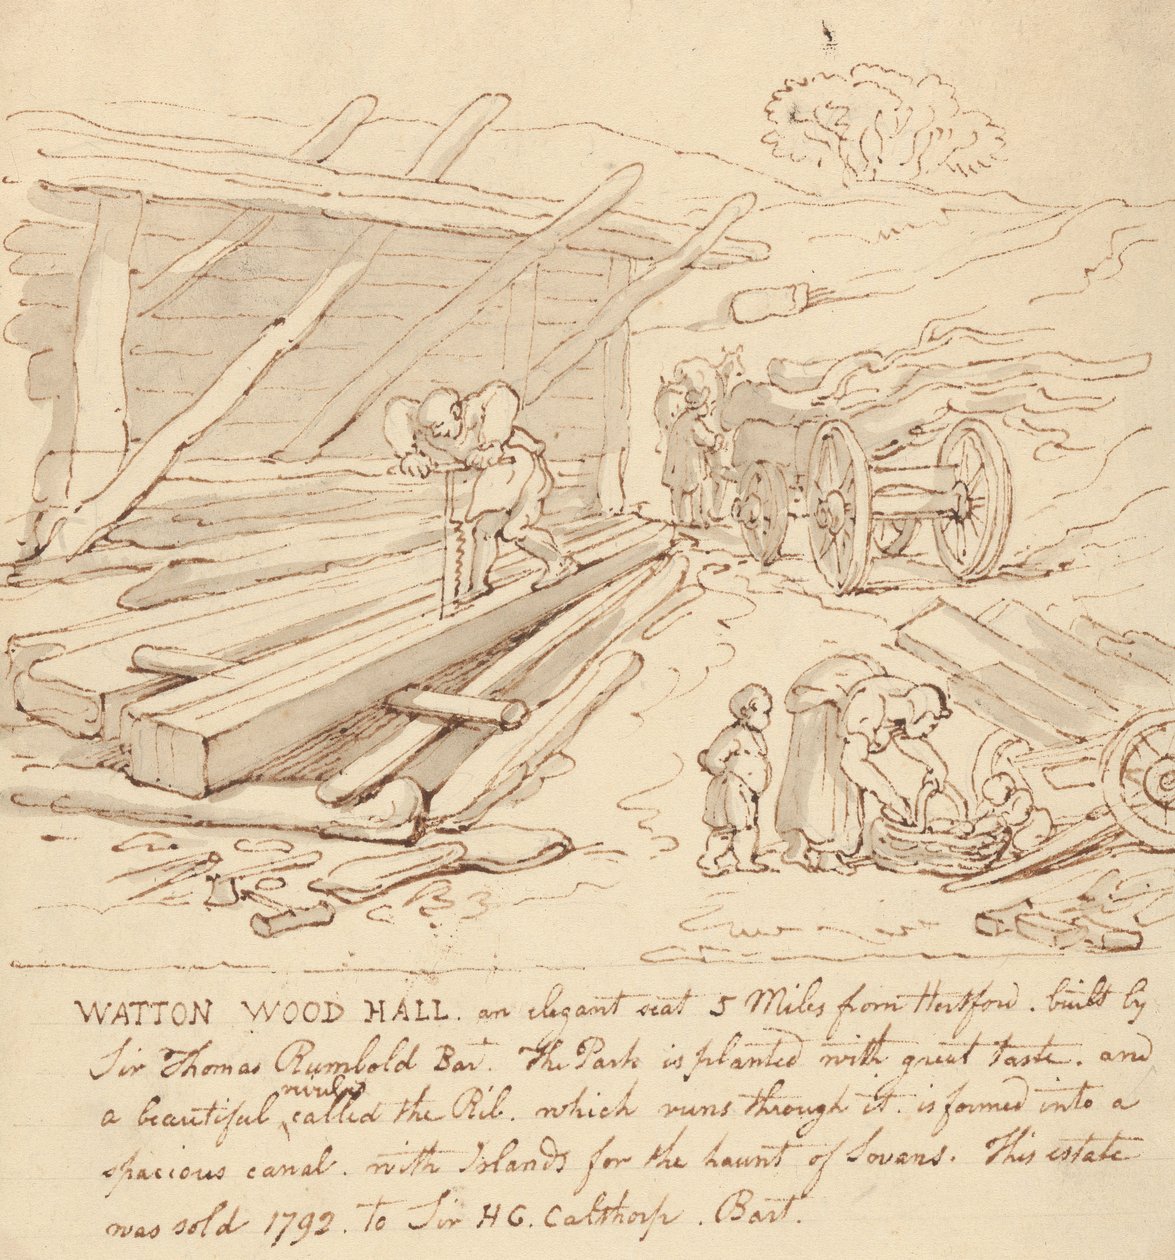 WATTON WOOD HALL. an elegant seat 5 Miles from Hertford. built by
Sir Thomas Rumbold Bart. The Park is planted with great taste. and
rivulet
a beautiful ‸ called the Rib. which runs through it. is formed into a
spacious canal. with Islands for the haunt of Swans. This estate
was sold 1792. to Sir H G. Calthorp. Bart.